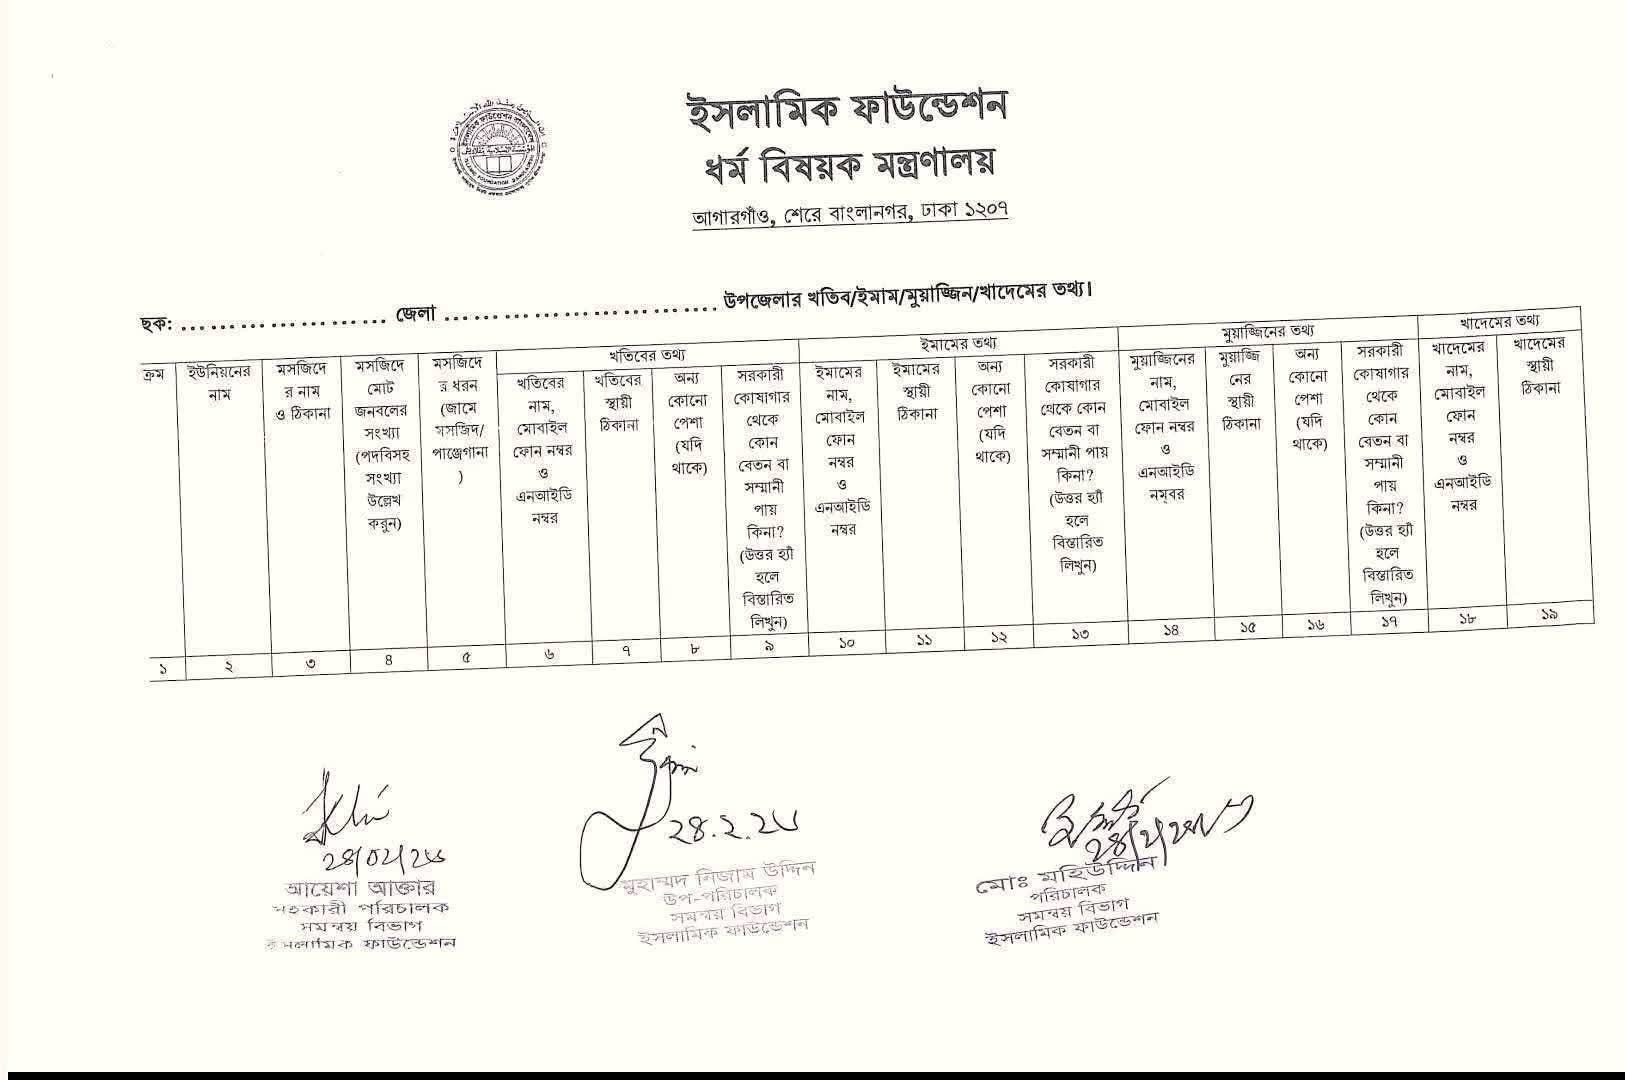 ইসলামিক ফাউন্ডেশন
ধর্ম বিষয়ক মন্ত্রণালয়
আগারগাঁও, শেরে বাংলানগর, ঢাকা ১২০৭
ছক: ..................... জেলা ........................... উপজেলার খতিব/ইমাম/মুয়াজ্জিন/খাদেমের তথ্য।
ক্রম
ইউনিয়নের
নাম
মসজিদে
র নাম
ও ঠিকানা
মসজিদে
মোট
জনবলের
সংখ্যা
(পদবিসহ
সংখ্যা
উল্লেখ
করুন)
মসজিদে
র ধরন
(জামে
মসজিদ/
পাঞ্জেগানা
)
খতিবের তথ্য
খতিবের
নাম,
মোবাইল
ফোন নম্বর
ও
এনআইডি
নম্বর
খতিবের
স্থায়ী
ঠিকানা
অন্য
কোনো
পেশা
(যদি
থাকে)
সরকারী
কোষাগার
থেকে
কোন
বেতন বা
সম্মানী
পায়
কিনা?
(উত্তর হ্যাঁ
হলে
বিস্তারিত
লিখুন)
ইমামের তথ্য
ইমামের
নাম,
মোবাইল
ফোন
নম্বর
ও
এনআইডি
নম্বর
ইমামের
স্থায়ী
ঠিকানা
অন্য
কোনো
পেশা
(যদি
থাকে)
সরকারী
কোষাগার
থেকে কোন
বেতন বা
সম্মানী পায়
কিনা?
(উত্তর হ্যাঁ
হলে
বিস্তারিত
লিখুন)
মুয়াজ্জিনের তথ্য
মুয়াজ্জিনের
নাম,
মোবাইল
ফোন নম্বর
ও
এনআইডি
নম্বর
মুয়াজ্জি
নের
স্থায়ী
ঠিকানা
অন্য
কোনো
পেশা
(যদি
থাকে)
সরকারী
কোষাগার
থেকে
কোন
বেতন বা
সম্মানী
পায়
কিনা?
(উত্তর হ্যাঁ
হলে
বিস্তারিত
লিখুন)
খাদেমের তথ্য
খাদেমের
নাম,
মোবাইল
ফোন
নম্বর
ও
এনআইডি
নম্বর
খাদেমের
স্থায়ী
ঠিকানা
১ ২ ৩ ৪ ৫ ৬ ৭ ৮ ৯ ১০ ১১ ১২ ১৩ ১৪ ১৫ ১৬ ১৭ ১৮ ১৯
২৪/০২/২৬
আয়েশা আক্তার
সহকারী পরিচালক
সমন্বয় বিভাগ
ইসলামিক ফাউন্ডেশন
২৪.২.২৬
মুহাম্মদ নিজাম উদ্দিন
উপ-পরিচালক
সমন্বয় বিভাগ
ইসলামিক ফাউন্ডেশন
মোঃ মহিউদ্দিন
পরিচালক
সমন্বয় বিভাগ
ইসলামিক ফাউন্ডেশন